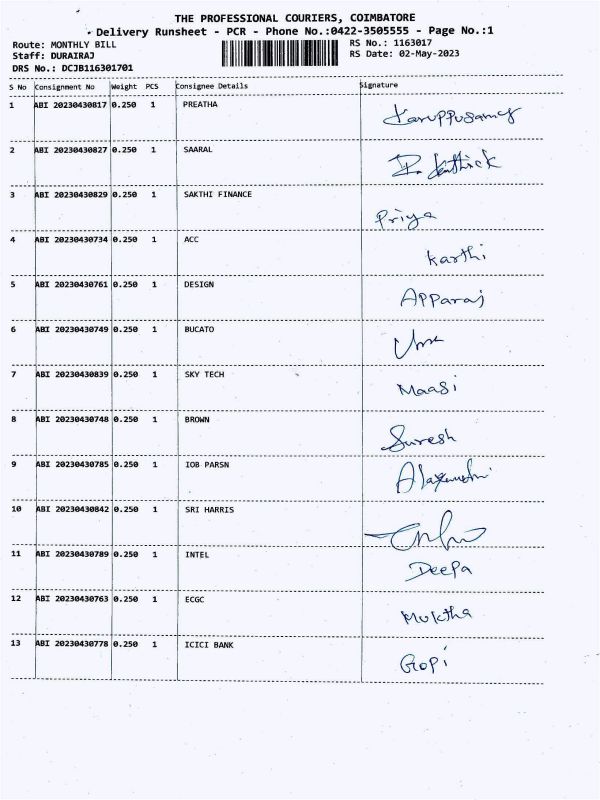 THE PROFESSIONAL COURIERS, COIMBATORE
Delivery Runsheet - PCR - Phone No.:0422-3505555 - Page No.:1
Route: MONTHLY BILL RS No.: 1163017
Staff: DURAIRAJ RS Date: 02-May-2023
DRS No.: DCJB116301701
S No Consignment No Weight PCS Consignee Details Signature
1 ABI 20230430817 0.250 1 PREATHA Karuppusamy
2 ABI 20230430827 0.250 1 SAARAL
3 ABI 20230430829 0.250 1 SAKTHI FINANCE Priya
4 ABI 20230430734 0.250 1 ACC Karthi
5 ABI 20230430761 0.250 1 DESIGN Apparaj
6 ABI 20230430749 0.250 1 BUCATO
7 ABI 20230430839 0.250 1 SKY TECH Maasi
8 ABI 20230430748 0.250 1 BROWN Suresh
9 ABI 20230430785 0.250 1 IOB PARSN
10 ABI 20230430842 0.250 1 SRI HARRIS
11 ABI 20230430789 0.250 1 INTEL Deepa
12 ABI 20230430763 0.250 1 ECGC Muktha
13 ABI 20230430778 0.250 1 ICICI BANK Gopi